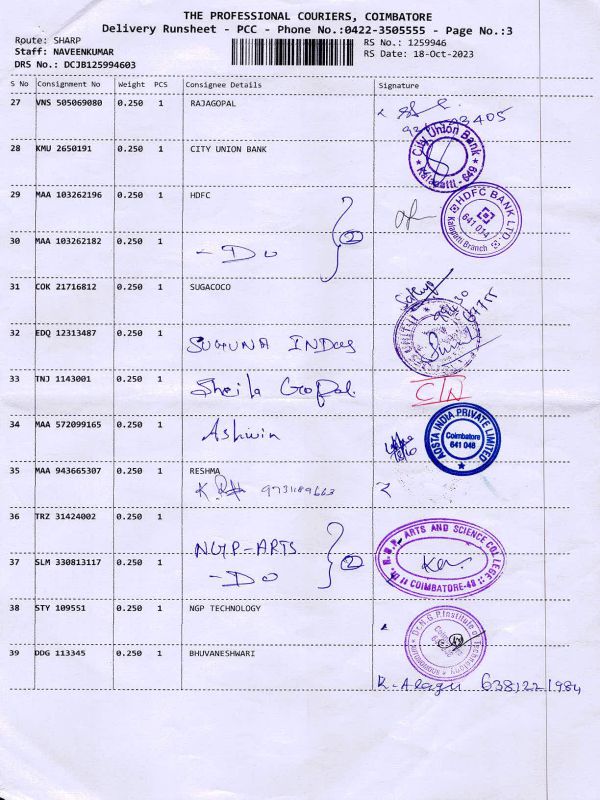 THE PROFESSIONAL COURIERS, COIMBATORE
Delivery Runsheet - PCC - Phone No.:0422-3505555 - Page No.:3
Route: SHARP
RS No.: 1259946
Staff: NAVEENKUMAR
RS Date: 18-Oct-2023
DRS No.: DCJB125994603
S No Consignment No Weight PCS Consignee Details Signature
27 VNS 505069080 0.250 1 RAJAGOPAL
28 KMU 2650191 0.250 1 CITY UNION BANK
City Union Bank
Kalapatti - 649
29 MAA 103262196 0.250 1 HDFC
HDFC BANK LTD.
641 014
Kalapatti Branch
30 MAA 103262182 0.250 1 - Do
2
31 COK 21716812 0.250 1 SUGACOCO
32 EDQ 12313487 0.250 1 SUGUNA INDus
33 TNJ 1143001 0.250 1 Sheila Gopal
34 MAA 572099165 0.250 1 Ashwin
AOSTA INDIA PRIVATE LIMITED
Coimbatore
641 046
35 MAA 943665307 0.250 1 RESHMA
36 TRZ 31424002 0.250 1 NGP-ARTS
ARTS AND SCIENCE COLLEGE
COIMBATORE-48
37 SLM 330813117 0.250 1 - DO
2
38 STY 109551 0.250 1 NGP TECHNOLOGY
Dr.N.G.P.Institute of Technology
39 DDG 113345 0.250 1 BHUVANESHWARI
K. Alagu